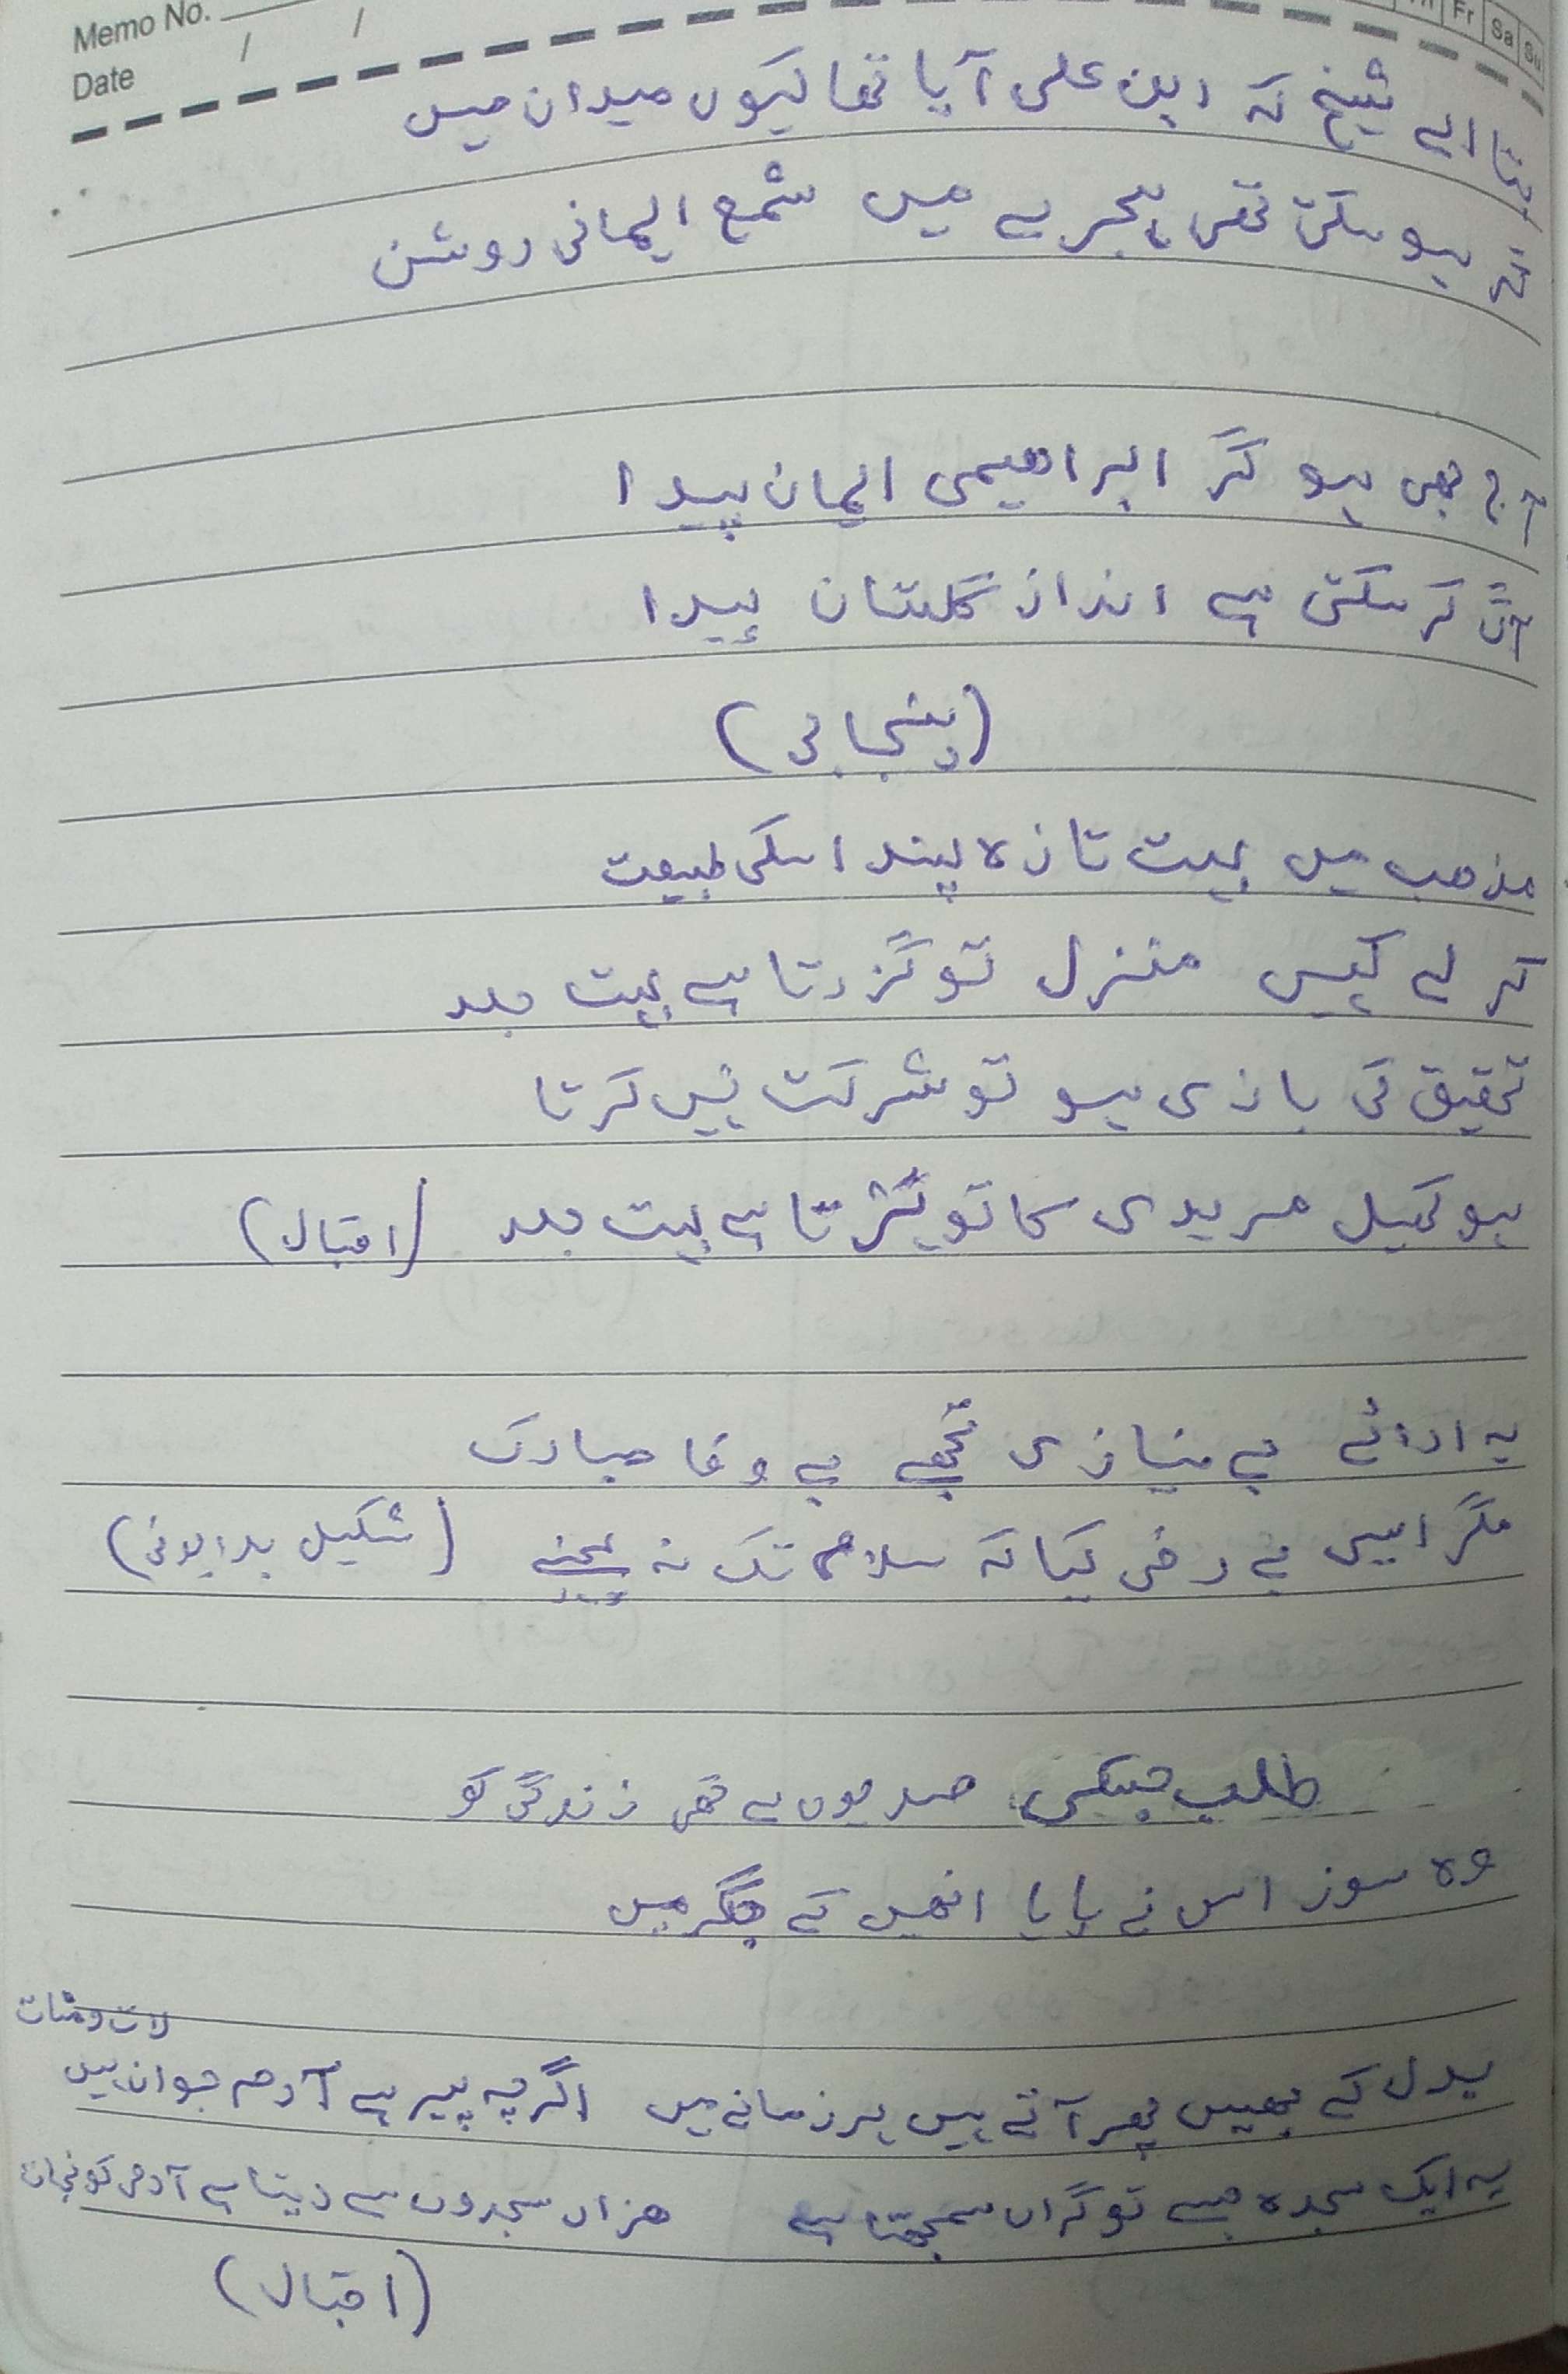 Memo No.
Date / /
Fr Sa Su
بتا اے شیخ کہ ابن علی آیا تھا کیوں میدان میں
کہ ہو سکتی تھی ہجرے میں شمع ایمانی روشن
آج بھی ہو گر ابراھیمی ایمان پیدا
آگ کر سکتی ہے انداز گلستان پیدا
(پنجابی)
مذھب میں بہت تازہ پسند اسکی طبیعت
کر لے کہیں منزل تو گزرتا ہے بہت جلد
تحقیق کی بازی ہو تو شرکت نہیں کرتا
ہو کھیل مریدی کا تو ہرتا ہے بہت جلد (اقبال)
یہ ادائے بے نیازی تجھے بے وفا مبارک
مگر ایسی بے رخی کیا کہ سلام تک نہ پہنچے (شکیل بدایونی)
طلب جسکی صدیوں سے تھی زندگی کو
وہ سوز اس نے پایا انھیں کے جگر میں
بدل کے بھیس پھر آتے ہیں ہر زمانے میں اگرچہ پیر ہے آدم جواں ہیں لات و منات
یہ ایک سجدہ جسے تو گراں سمجھتا ہے ھزار سجدوں سے دیتا ہے آدمی کو نجات
(اقبال)